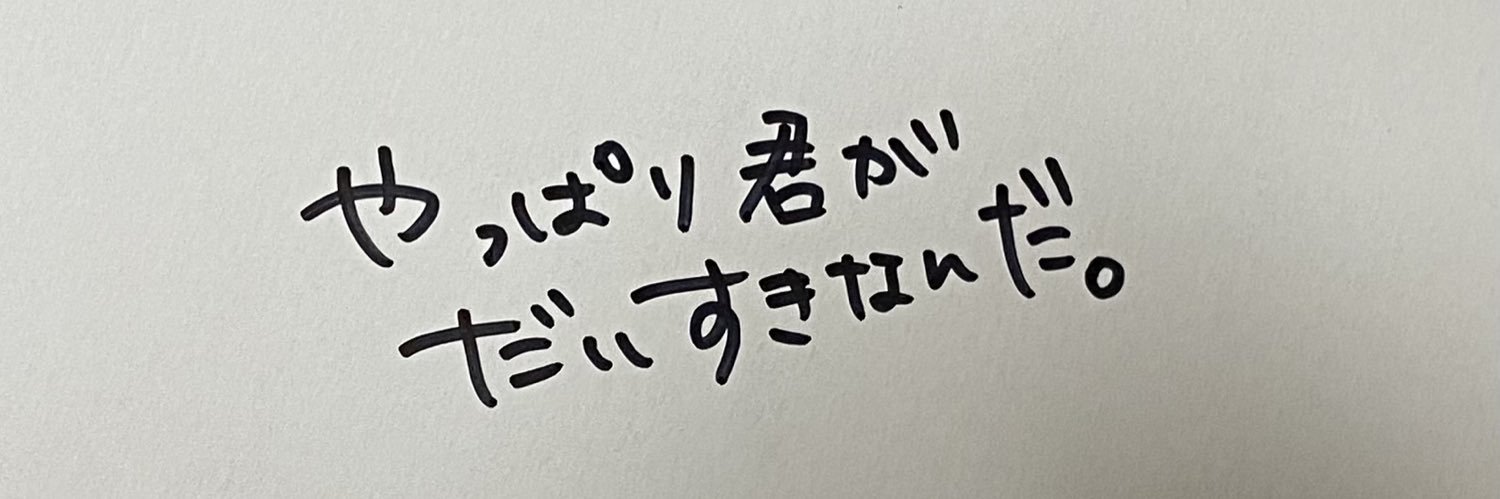 やっぱり君が
だいすきなんだ。